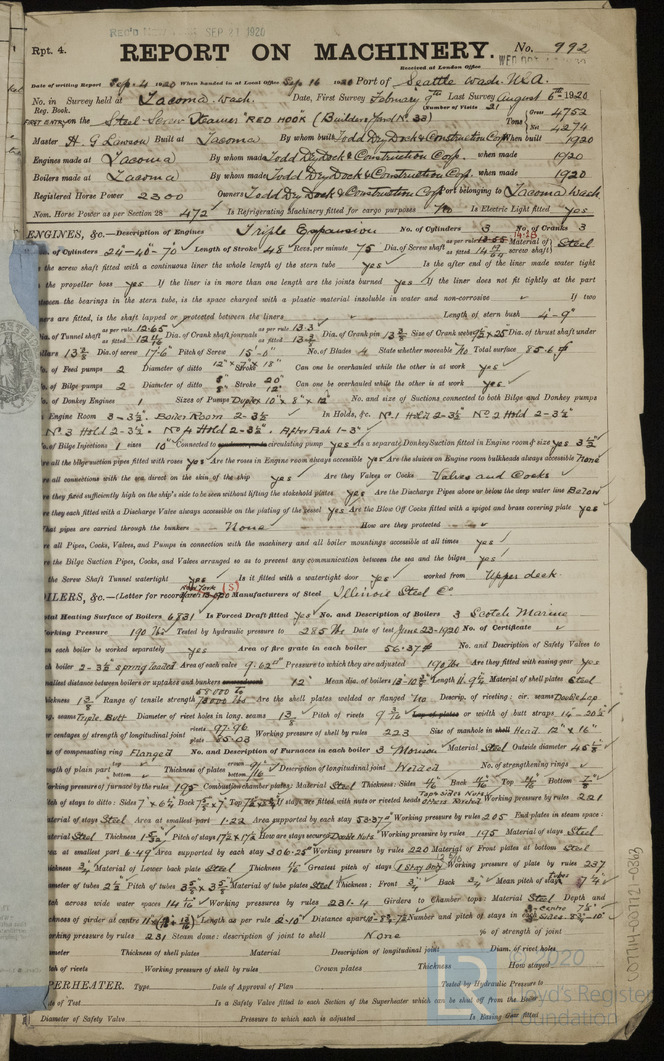 Rec'd New York SEP 21 1920
Rpt. 4. REPORT ON MACHINERY. No. 992
Received at London Office WED OCT
Date of writing Report Sep. 4 1920 When handed in at Local Office Sep 16 1920 Port of Seattle Wash. U.S.A.
No. in Survey held at Tacoma. Wash. Date, First Survey February 9th Last Survey August 6th 1920
Reg. Book. (Number of Visits 31)
FIRST ENTRY on the Steel Screw Steamer "RED HOOK" (Builders Yard No 33) Tons Gross 4752 Net 4274
Master H. G. Lawson Built at Tacoma By whom built Todd Dry Dock & Construction Corp. When built 1920
Engines made at Tacoma By whom made Todd Dry Dock & Construction Corp. when made 1920
Boilers made at Tacoma By whom made Todd Dry Dock & Construction Corp. when made 1920
Registered Horse Power 2300 Owners Todd Dry Dock & Construction Corp Port belonging to Tacoma Wash
Nom. Horse Power as per Section 28 472 Is Refrigerating Machinery fitted for cargo purposes No Is Electric Light fitted yes
ENGINES, &c.—Description of Engines Triple Expansion No. of Cylinders 3 No. of Cranks 3
of Cylinders 24"-40"-70" Length of Stroke 48 Revs. per minute 75 Dia. of Screw shaft as per rule as fitted Material of screw shaft Steel
the screw shaft fitted with a continuous liner the whole length of the stern tube yes Is the after end of the liner made water tight
the propeller boss yes If the liner is in more than one length are the joints burned yes If the liner does not fit tightly at the part
between the bearings in the stern tube, is the space charged with a plastic material insoluble in water and non-corrosive If two
ners are fitted, is the shaft lapped or protected between the liners Length of stern bush 4'-9"
ia. of Tunnel shaft as per rule 12.65 as fitted Dia. of Crank shaft journals as per rule 13.3 as fitted Dia. of Crank pin 13 3/8 Size of Crank webs Dia. of thrust shaft under
ollars 13 3/8 Dia. of screw 17'-6" Pitch of Screw 15'-0" No. of Blades 4 State whether moveable No Total surface 85.6
o. of Feed pumps 2 Diameter of ditto Stroke 18" Can one be overhauled while the other is at work yes
o. of Bilge pumps 2 Diameter of ditto Stroke Can one be overhauled while the other is at work yes
o. of Donkey Engines 1 Sizes of Pumps Duplex 10" x 8" x 12" No. and size of Suctions connected to both Bilge and Donkey pumps
Engine Room 3-3½". Boiler Room 2-3½ In Holds, &c. No 1 Hold 2-3½" No 2 Hold 2-3½"
No 3 Hold 2-3½". No 4 Hold 2-3½". After Peak 1-3"
o. of Bilge Injections 1 sizes 10" Connected to circulating pump yes Is a separate Donkey Suction fitted in Engine room & size yes 3½"
re all the bilge suction pipes fitted with roses yes Are the roses in Engine room always accessible yes Are the sluices on Engine room bulkheads always accessible None
re all connections with the sea direct on the skin of the ship yes Are they Valves or Cocks Valves and Cocks
re they fixed sufficiently high on the ship's side to be seen without lifting the stokehold plates yes Are the Discharge Pipes above or below the deep water line Below
re they each fitted with a Discharge Valve always accessible on the plating of the vessel yes Are the Blow Off Cocks fitted with a spigot and brass covering plate yes
hat pipes are carried through the bunkers None How are they protected
re all Pipes, Cocks, Valves, and Pumps in connection with the machinery and all boiler mountings accessible at all times yes
re the Bilge Suction Pipes, Cocks, and Valves arranged so as to prevent any communication between the sea and the bilges yes
the Screw Shaft Tunnel watertight yes Is it fitted with a watertight door yes worked from Upper deck
OILERS, &c.—(Letter for record (S)) Manufacturers of Steel Illinois Steel Co
otal Heating Surface of Boilers 6831 Is Forced Draft fitted yes No. and Description of Boilers 3 Scotch Marine
orking Pressure 190 lbs Tested by hydraulic pressure to 285 lbs Date of test June 23-1920 No. of Certificate
an each boiler be worked separately yes Area of fire grate in each boiler 56.37 No. and Description of Safety Valves to
ch boiler 2-3½ spring loaded Area of each valve 9.62 Pressure to which they are adjusted 190 lbs Are they fitted with easing gear yes
mallest distance between boilers or uptakes and bunkers 12" Mean dia. of boilers Length Material of shell plates Steel
hickness 1 3/8 Range of tensile strength Are the shell plates welded or flanged No Descrip. of riveting: cir. seams Double Lap
ng. seams Triple Butt Diameter of rivet holes in long. seams 1 3/8 Pitch of rivets or width of butt straps
er centages of strength of longitudinal joint rivets 97.96 plate 85.23 Working pressure of shell by rules 223 Size of manhole in Head 12" x 16"
ze of compensating ring Flanged No. and Description of Furnaces in each boiler 3 Morison Material Steel Outside diameter
ngth of plain part top bottom Thickness of plates crown bottom Description of longitudinal joint Welded No. of strengthening rings
orking pressure of furnace by the rules 195 Combustion chamber plates: Material Steel Thickness: Sides Back Top Bottom
itch of stays to ditto: Sides Back Top If stays are fitted with nuts or riveted heads Others Riveted Working pressure by rules 221
aterial of stays Steel Area at smallest part 1.22 Area supported by each stay 53.37 Working pressure by rules 205 End plates in steam space:
aterial Steel Thickness Pitch of stays How are stays secured Double Nuts Working pressure by rules 195 Material of stays Steel
ea at smallest part 6.49 Area supported by each stay 306.25 Working pressure by rules 220 Material of Front plates at bottom Steel
hickness ¾ Material of Lower back plate Steel Thickness Greatest pitch of stays (1 Stay Only) Working pressure of plate by rules 237
iameter of tubes 2½ Pitch of tubes Material of tube plates Steel Thickness: Front ¾ Back ¾ Mean pitch of stays 7¼
itch across wide water spaces Working pressures by rules 231.4 Girders to Chamber tops: Material Steel Depth and
ickness of girder at centre Length as per rule 2'-10" Distance apart Number and pitch of stays in each
orking pressure by rules 231 Steam dome: description of joint to shell None % of strength of joint
iameter Thickness Material Description of longitudinal joint Diam. of rivet holes
tch of rivets Working pressure of shell by rules Crown plates Thickness How stayed
PERHEATER. Type Date of Approval of Plan Tested by Hydraulic Pressure to
ate of Test Is a Safety Valve fitted to each Section of the Superheater which can be shut off from the Boiler
Diameter of Safety Valve Pressure to which each is adjusted Is Easing Gear fitted
007714-007721-0363
LR © 2020
Lloyd's Register
Foundation